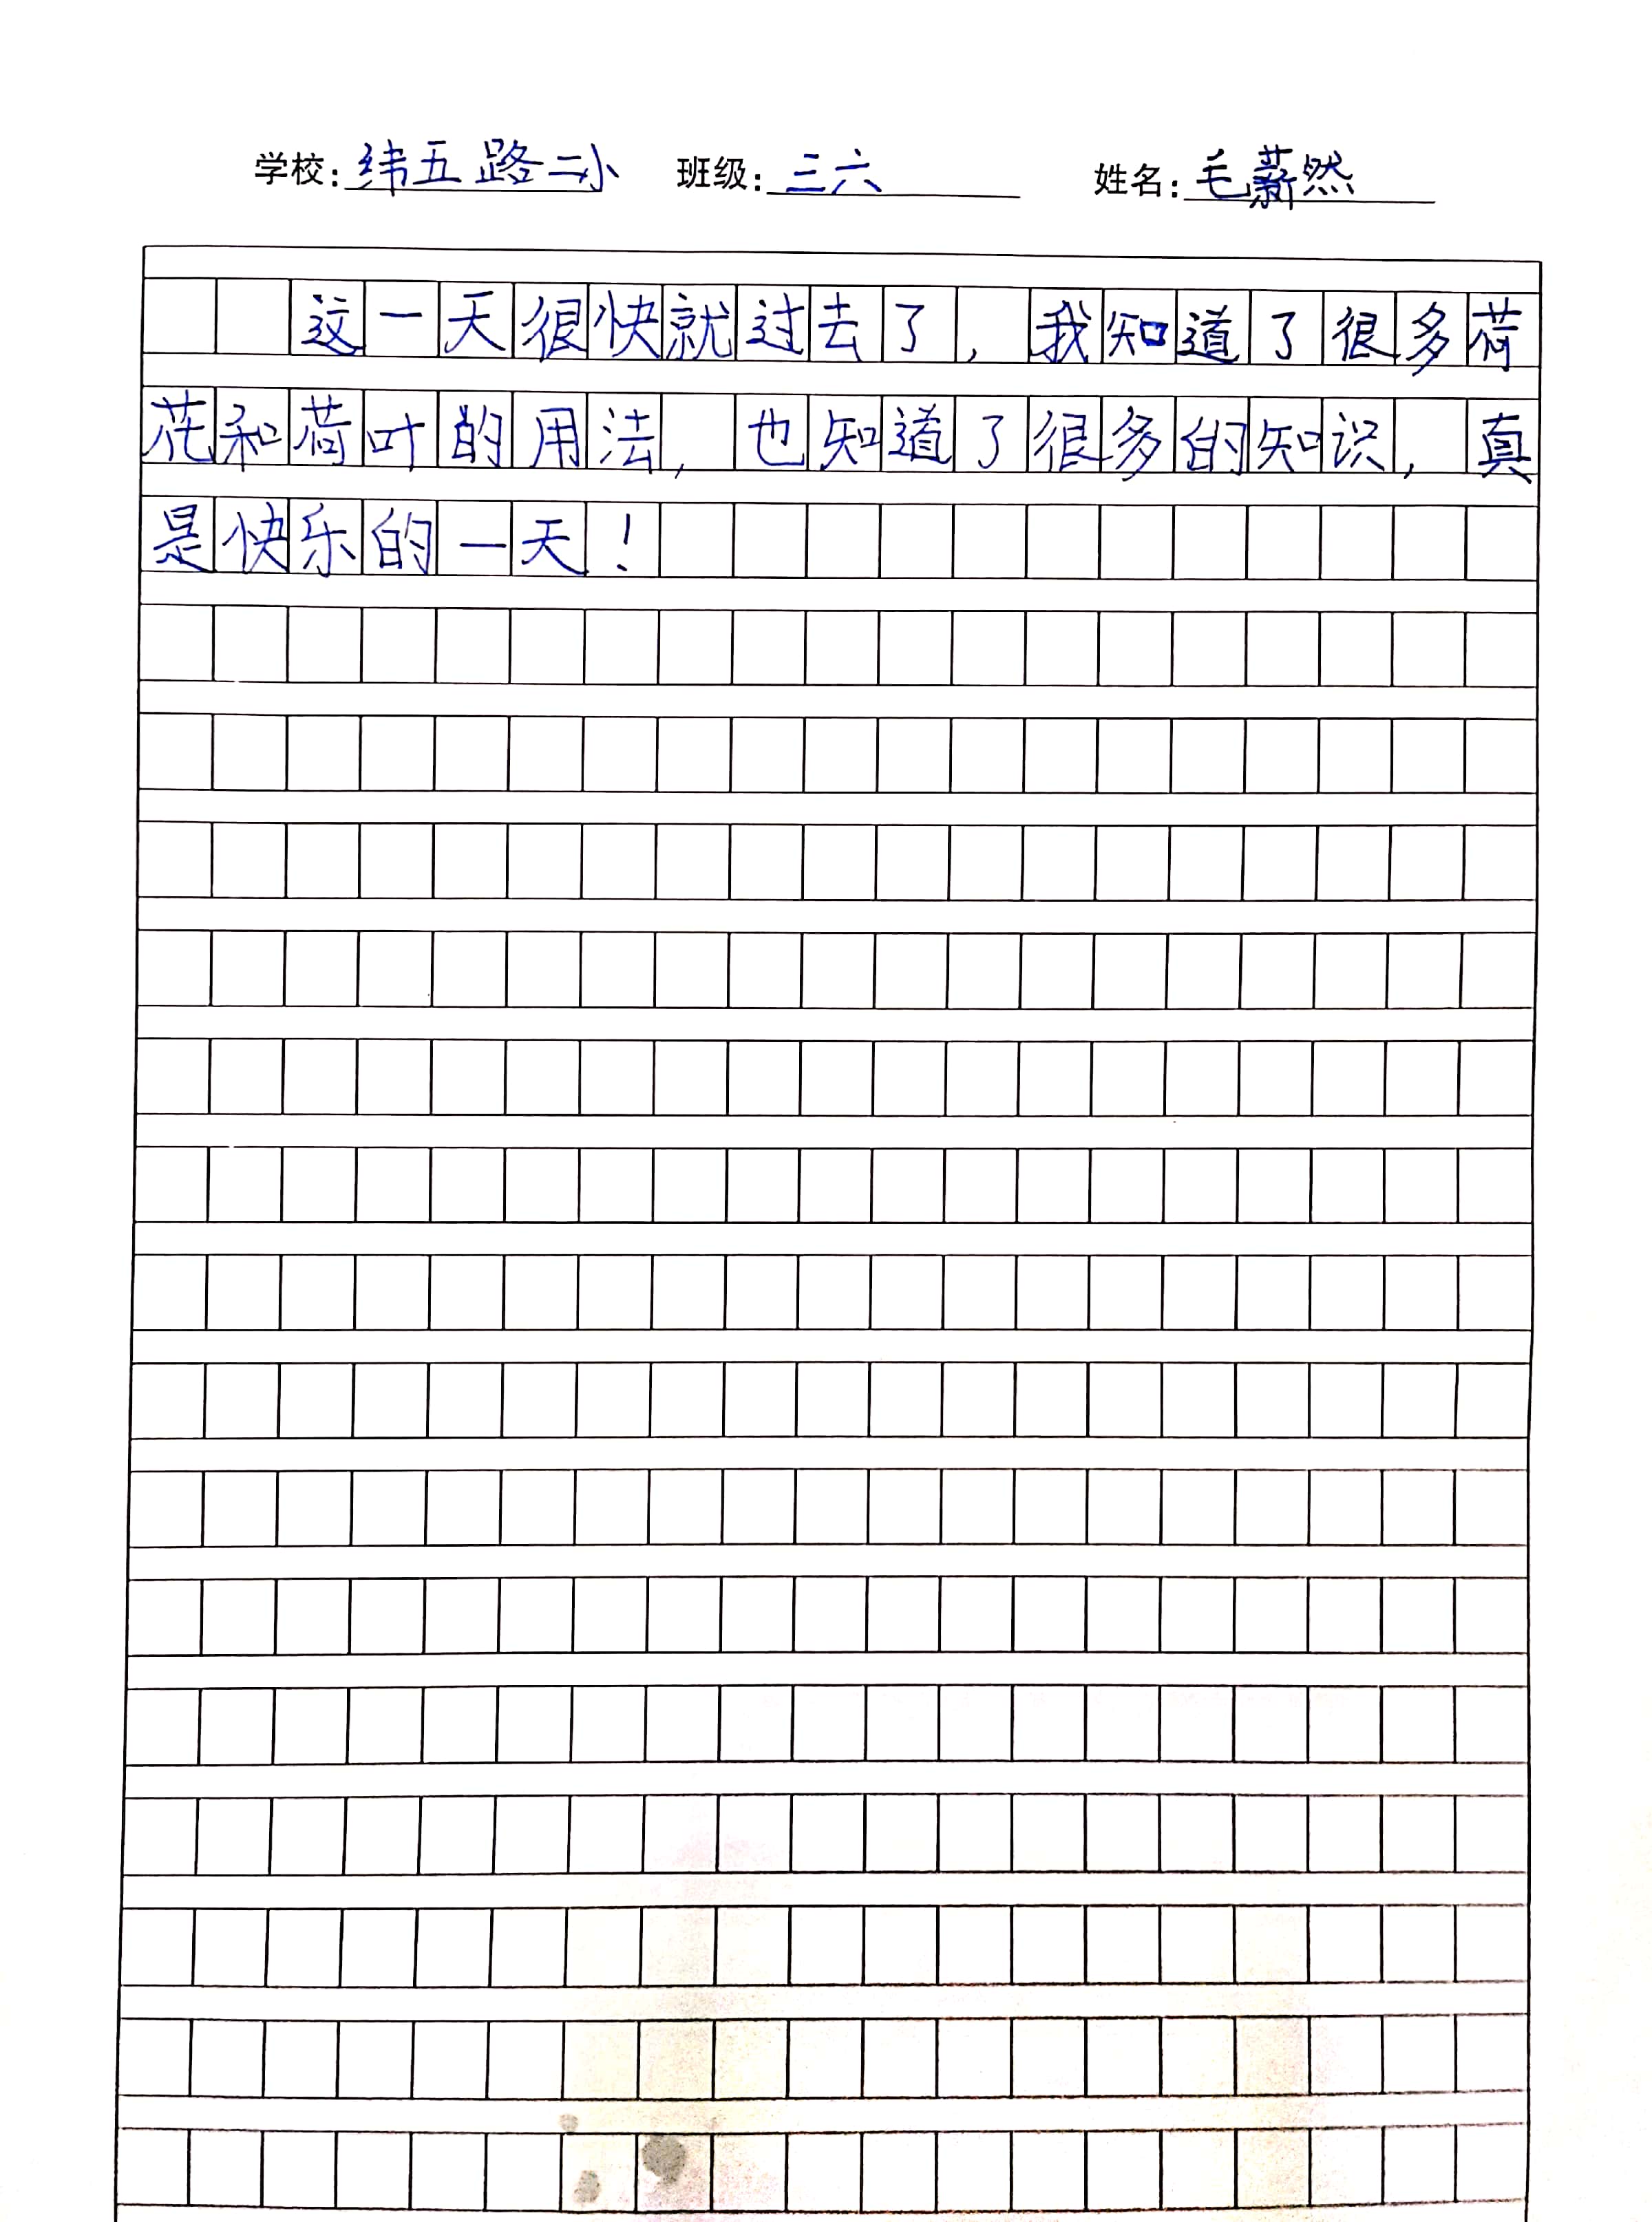 学校:纬五路二小 班级:三六 姓名:毛薪然
这一天很快就过去了，我知道了很多荷
花和荷叶的用法，也知道了很多的知识，真
是快乐的一天！